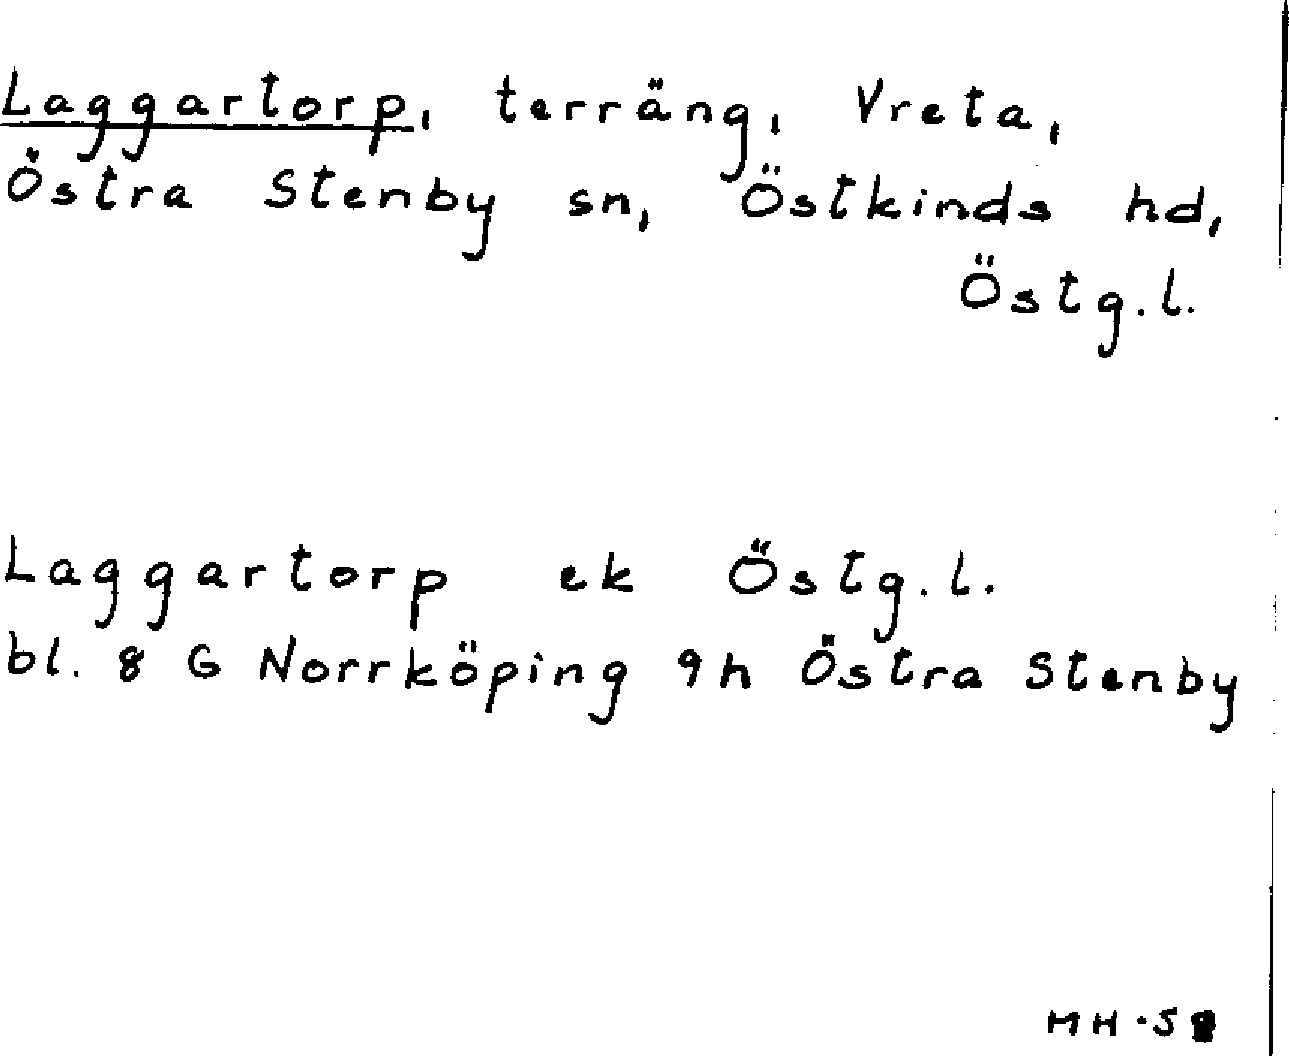 Laggartorp, terräng, Vreta,
Östra Stenby sn, Östkinds hd,
Östg.l.
Laggartorp ek Östg.l.
bl. 8 G Norrköping 9h Östra Stenby